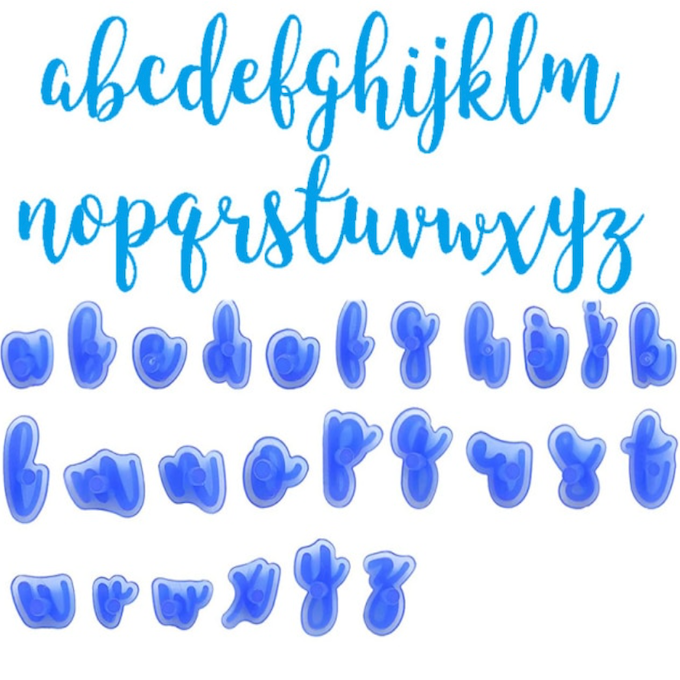 abcdefghijklm
nopqrstuvwxyz
a b c d e f g h i j k
l m n o p q r s t
u v w x y z